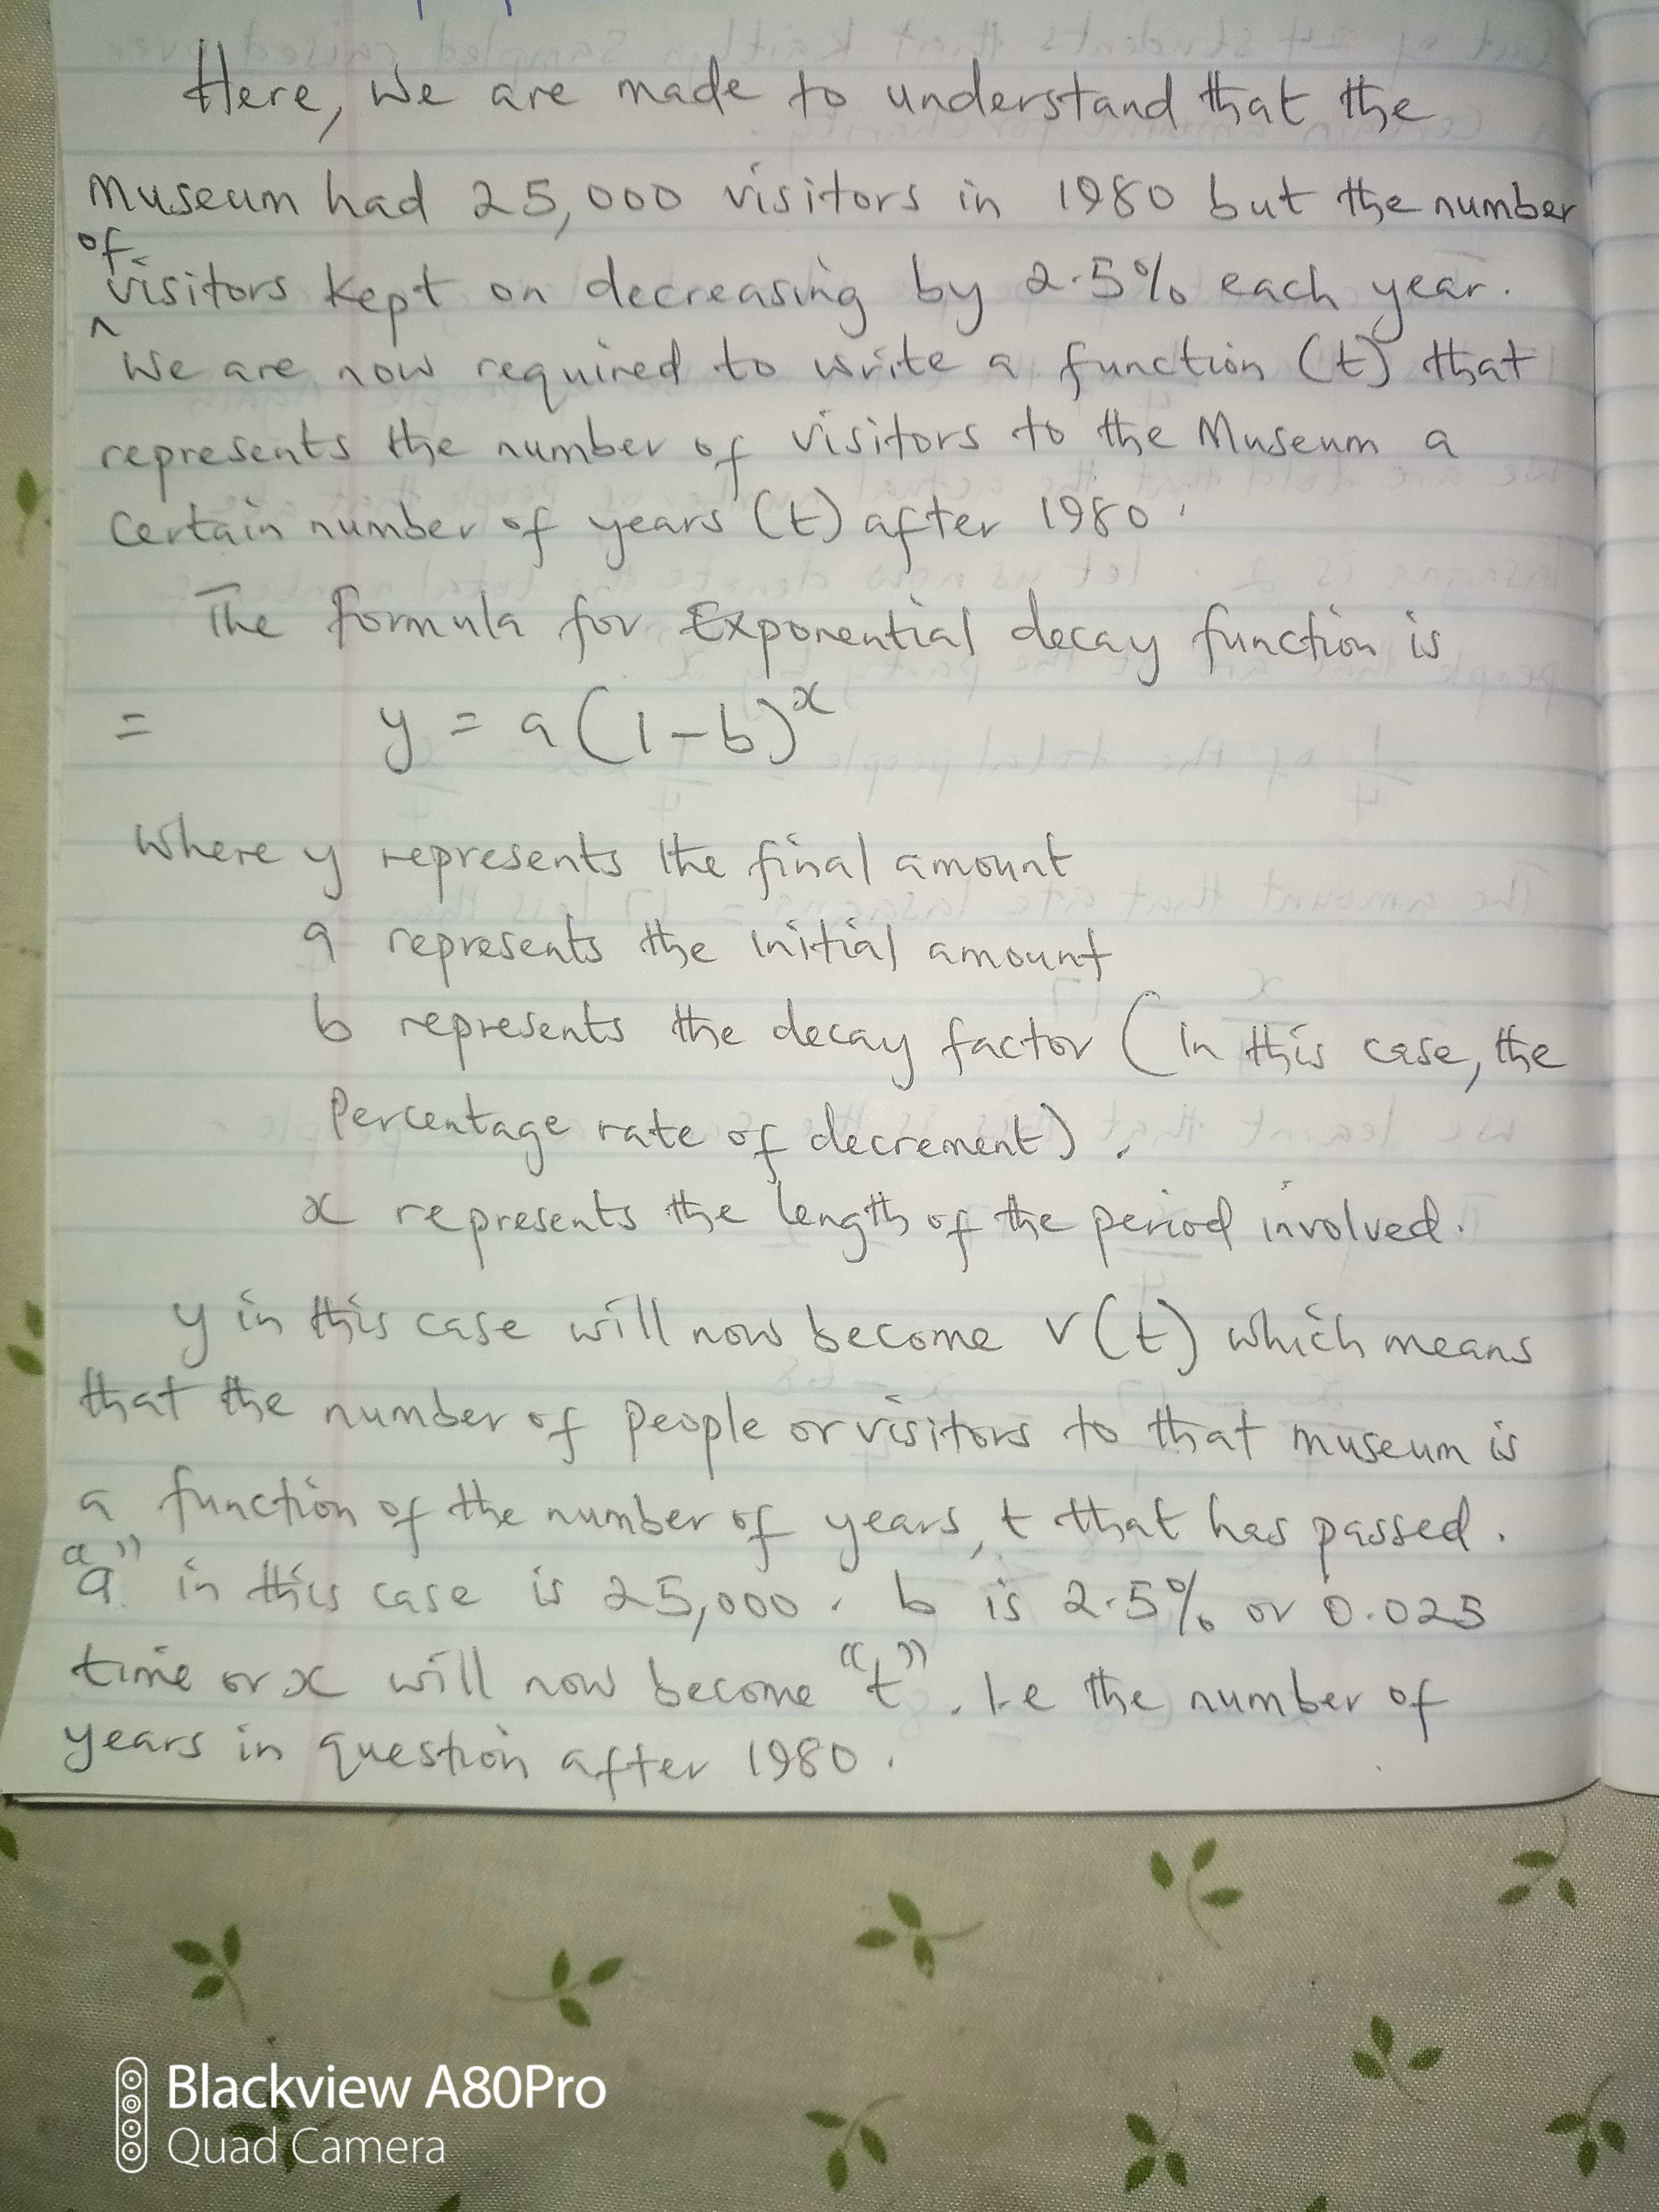 Here, We are made to understand that the
Museum had 25,000 visitors in 1980 but the number
of visitors kept on decreasing by 2.5% each year.
We are now required to write a function (t) that
represents the number of visitors to the Museum a
Certain number of years (t) after 1980.
The formula for Exponential decay function is
= y = a(1-b)^x
Where y represents the final amount
a represents the initial amount
b represents the decay factor (In this case, the
Percentage rate of decrement).
x represents the length of the period involved.
y in this case will now become v(t) which means
that the number of people or visitors to that museum is
a function of the number of years, t that has passed.
"a" in this case is 25,000. b is 2.5% or 0.025
time or x will now become "t". I.e the number of
years in question after 1980.
Blackview A80Pro
Quad Camera